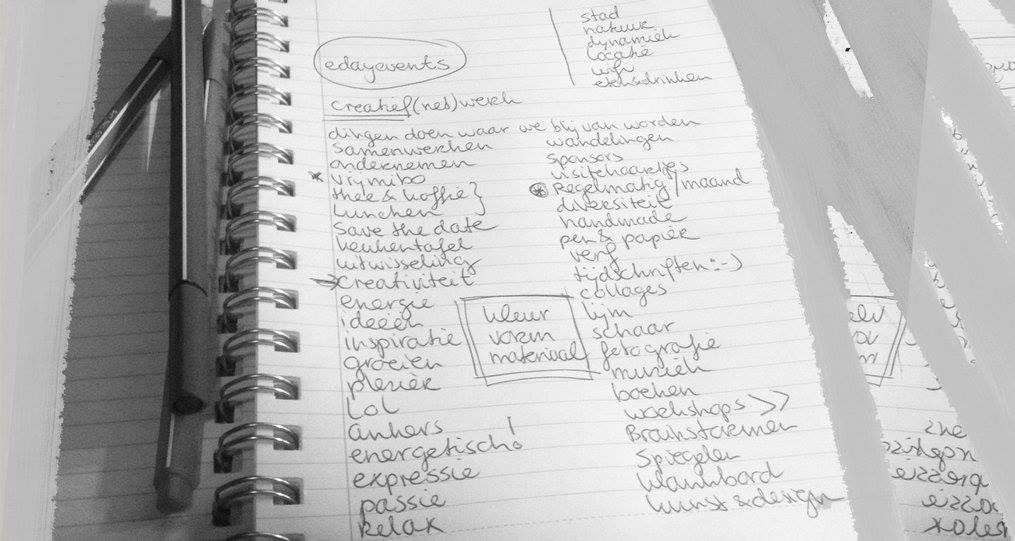 edayevents
stad
natuur
dynamisch
locatie
wifi
eten&drinken
creatief(net)werk
dingen doen waar we blij van worden
samenwerken
ondernemen
vrijmibo
thee & koffie }
lunchen
save the date
keukentafel
uitwisseling
→ creativiteit
energie
ideeën
inspiratie
groeien
plezier
Lol
ankers
energetisch!
expressie
passie
Relax
kleur
vorm
materiaal
wandelingen
sponsors
visitekaartjes
Regelmatig / maand
diversiteit
handmade
pen & papier
verf
tijdschriften :-)
collages
lijm
schaar
fotografie
muziek
boeken
workshops >>
Brainstormen
Spiegelen
klankbord
kunst & design